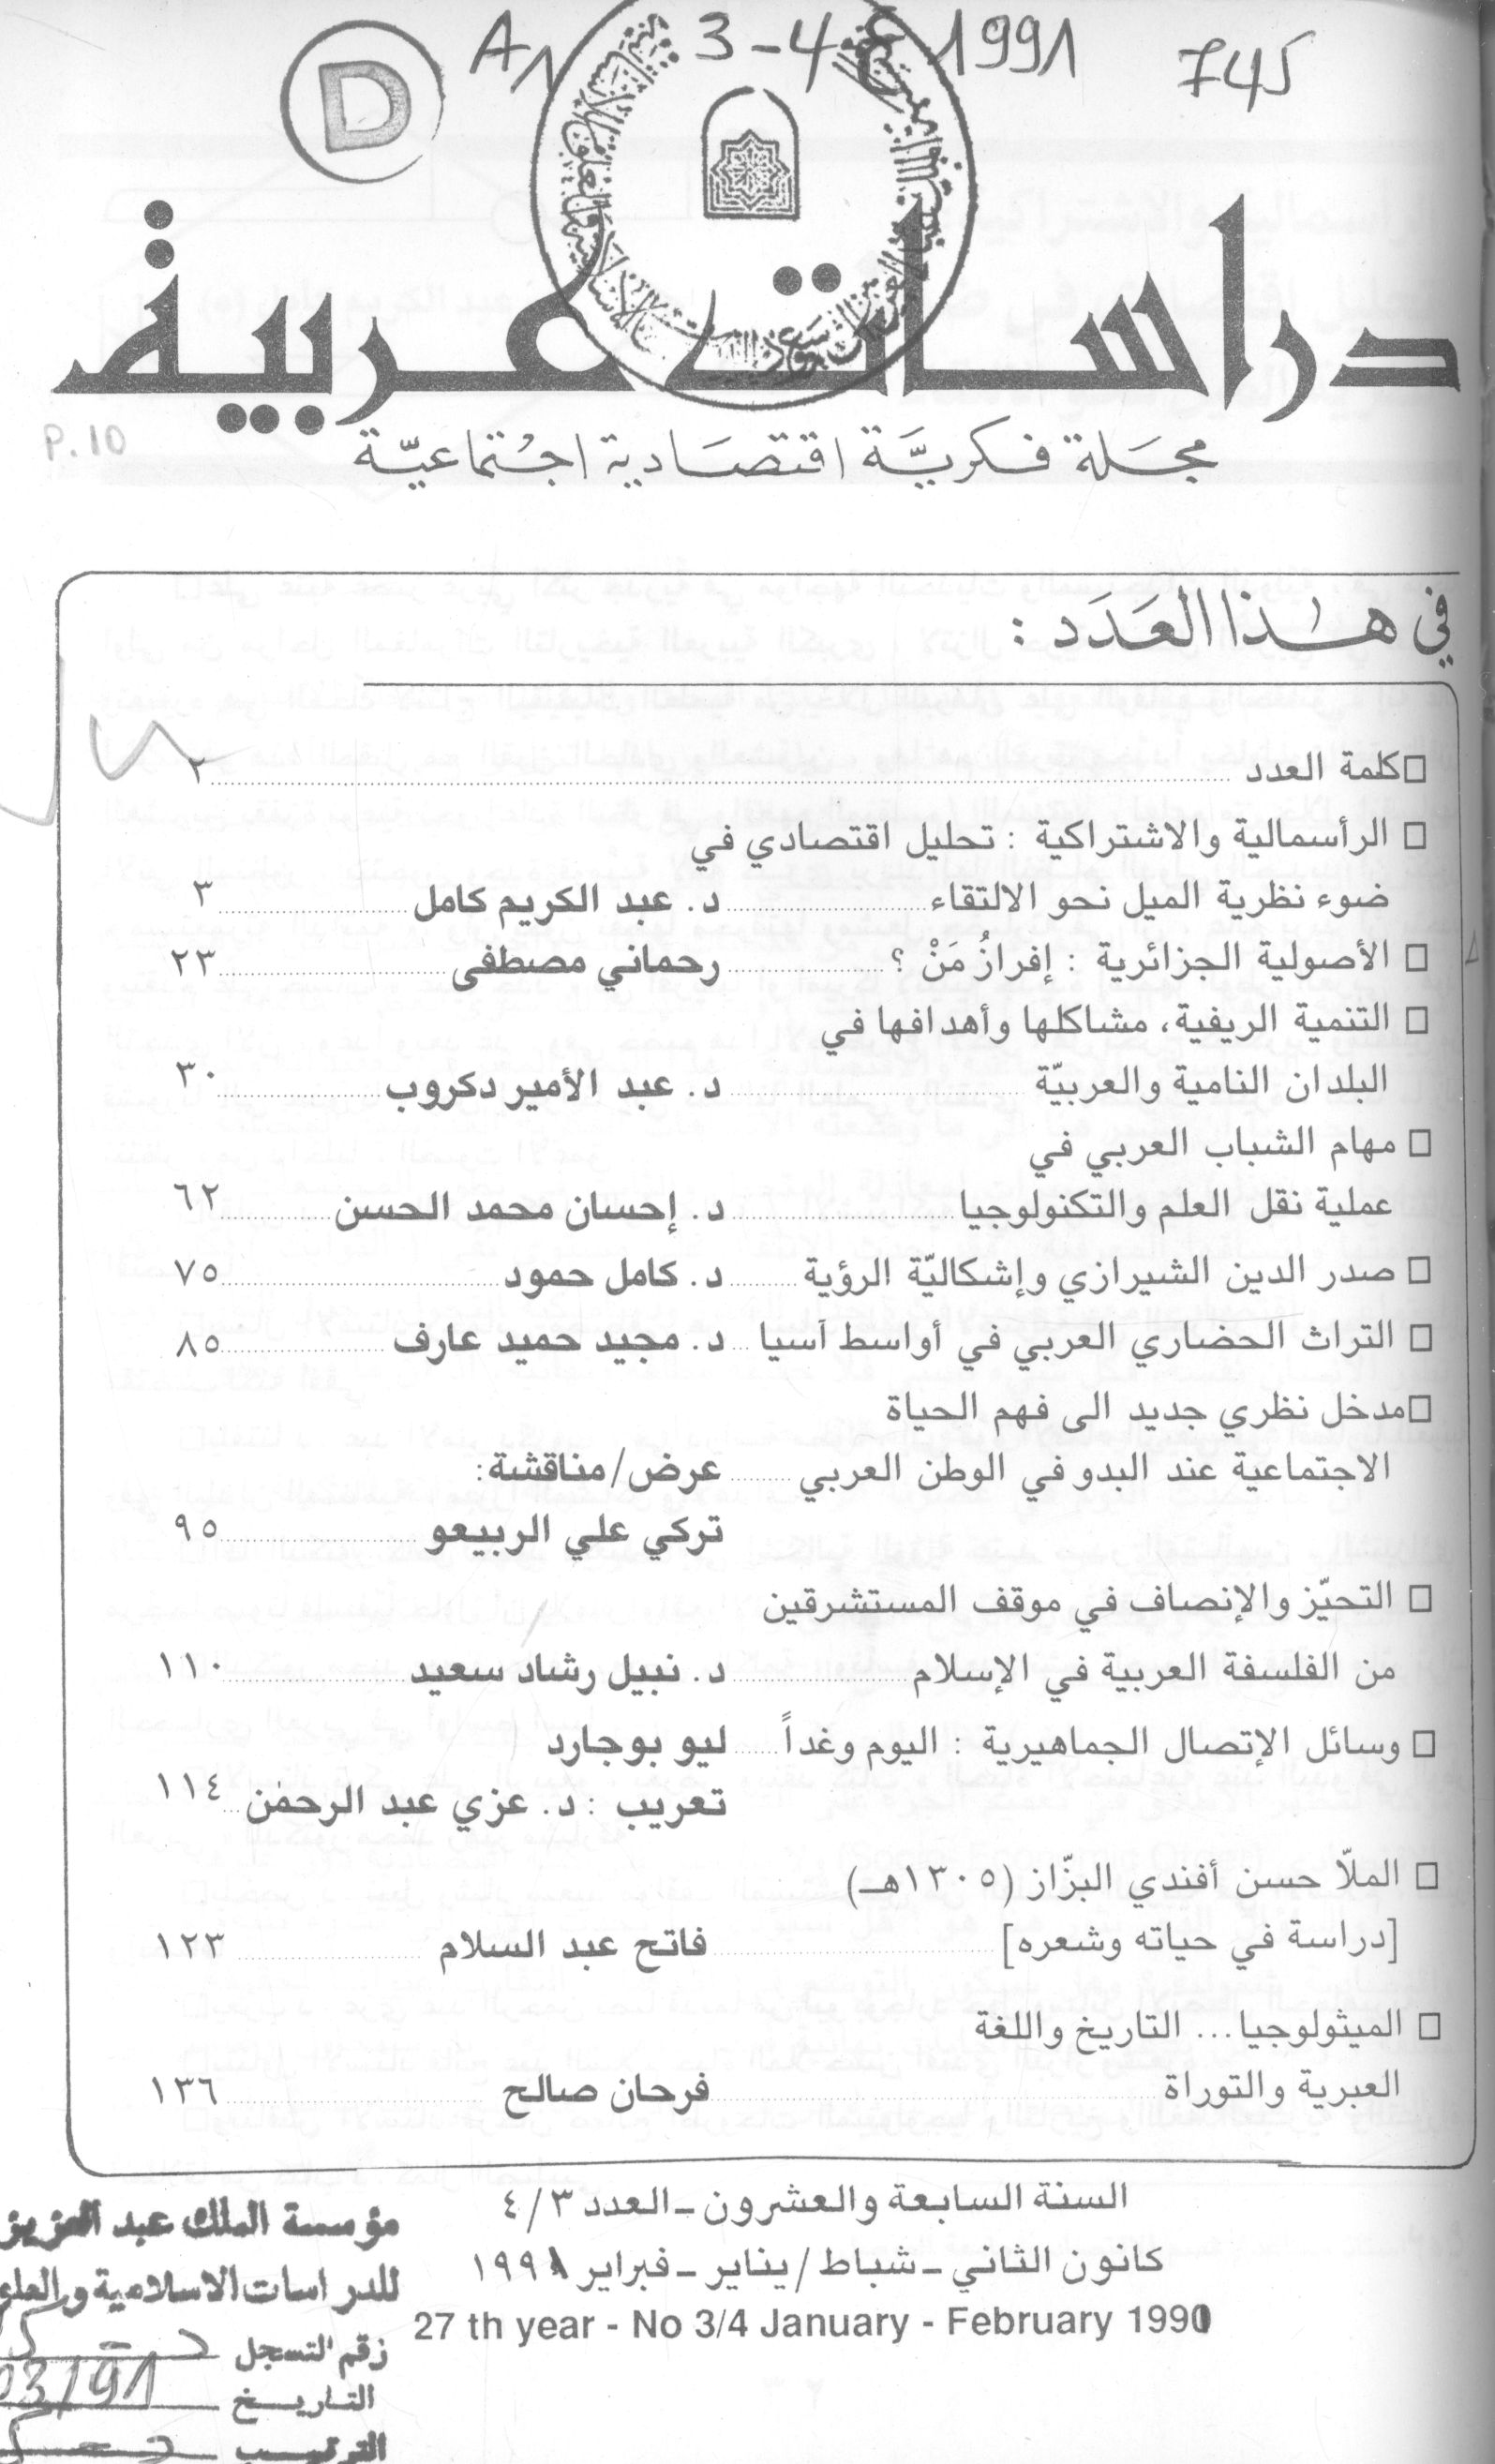 D
A1 3-4 1991 745
دراسات عربية
P. 10
مجلة فكريّة اقتصادية اجتماعيّة
في هٰذا العَدَد :
□ كلمة العدد ٢
□ الرأسمالية والاشتراكية : تحليل اقتصادي في
ضوء نظرية الميل نحو الالتقاء د. عبد الكريم كامل ٣
□ الأصولية الجزائرية : إفرازُ مَنْ ؟ رحماني مصطفى ٢٣
□ التنمية الريفية، مشاكلها وأهدافها في
البلدان النامية والعربيّة د. عبد الأمير دكروب ٣٠
□ مهام الشباب العربي في
عملية نقل العلم والتكنولوجيا د. إحسان محمد الحسن ٦٢
□ صدر الدين الشيرازي وإشكاليّة الرؤية د. كامل حمود ٧٥
□ التراث الحضاري العربي في أواسط آسيا د. مجيد حميد عارف ٨٥
□ مدخل نظري جديد الى فهم الحياة
الاجتماعية عند البدو في الوطن العربي عرض/مناقشة:
تركي علي الربيعو ٩٥
□ التحيّز والإنصاف في موقف المستشرقين
من الفلسفة العربية في الإسلام د. نبيل رشاد سعيد ١١٠
□ وسائل الإتصال الجماهيرية : اليوم وغداً ليو بوجارد
تعريب : د. عزي عبد الرحمٰن ١١٤
□ الملّا حسن أفندي البزّاز (١٣٠٥هـ)
[دراسة في حياته وشعره] فاتح عبد السلام ١٢٣
□ الميثولوجيا... التاريخ واللغة
العبرية والتوراة فرحان صالح ١٣٦
السنة السابعة والعشرون ـ العدد ٤/٣
كانون الثاني ـ شباط/يناير ـ فبراير ١٩٩١
27 th year - No 3/4 January - February 1990
مؤسسة الملك عبد العزيز
للدراسات الاسلامية والعلو
رقم التسجل
التاريخ 03/91
الترتيب